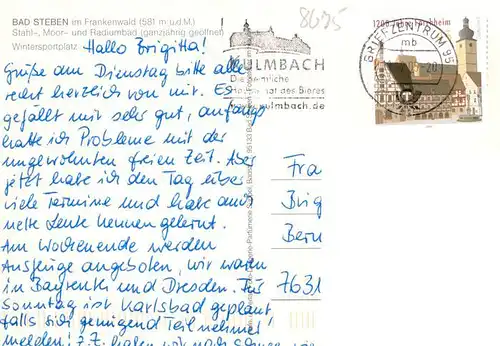 BAD STEBEN im Frankenwald (581 m ü.d.M.)
Stahl-, Moor- und Radiumbad (ganzjährig geöffnet)
Wintersportplatz
Hallo Brigitta!
Grüße am Dienstag bitte alle
recht herzlich von mir. Es
gefällt mir sehr gut, anfangs
hatte ich Probleme mit der
ungewohnten freien Zeit. Aber
jetzt habe ich den Tag über
viele Termine und habe auch
nette Leute kennen gelernt.
Am Wochenende werden
Ausflüge angeboten, wir waren
in Bayreuth und Dresden. Für
Sonntag ist Karlsbad geplant
falls sich genügend Teilnehmer
melden! Z.Z. haben wir noch
8695
KULMBACH
Die heimliche
Hauptstadt des Bieres
www.kulmbach.de
1200 Jahre Forchheim
BRIEFZENTRUM 95
mb
Fra
Brig
Bern
7631